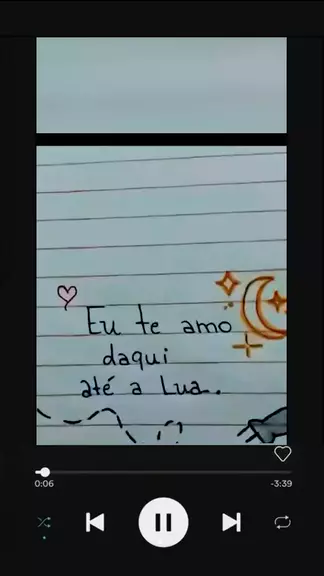 Eu te amo
daqui
até a Lua.
0:06
-3:39